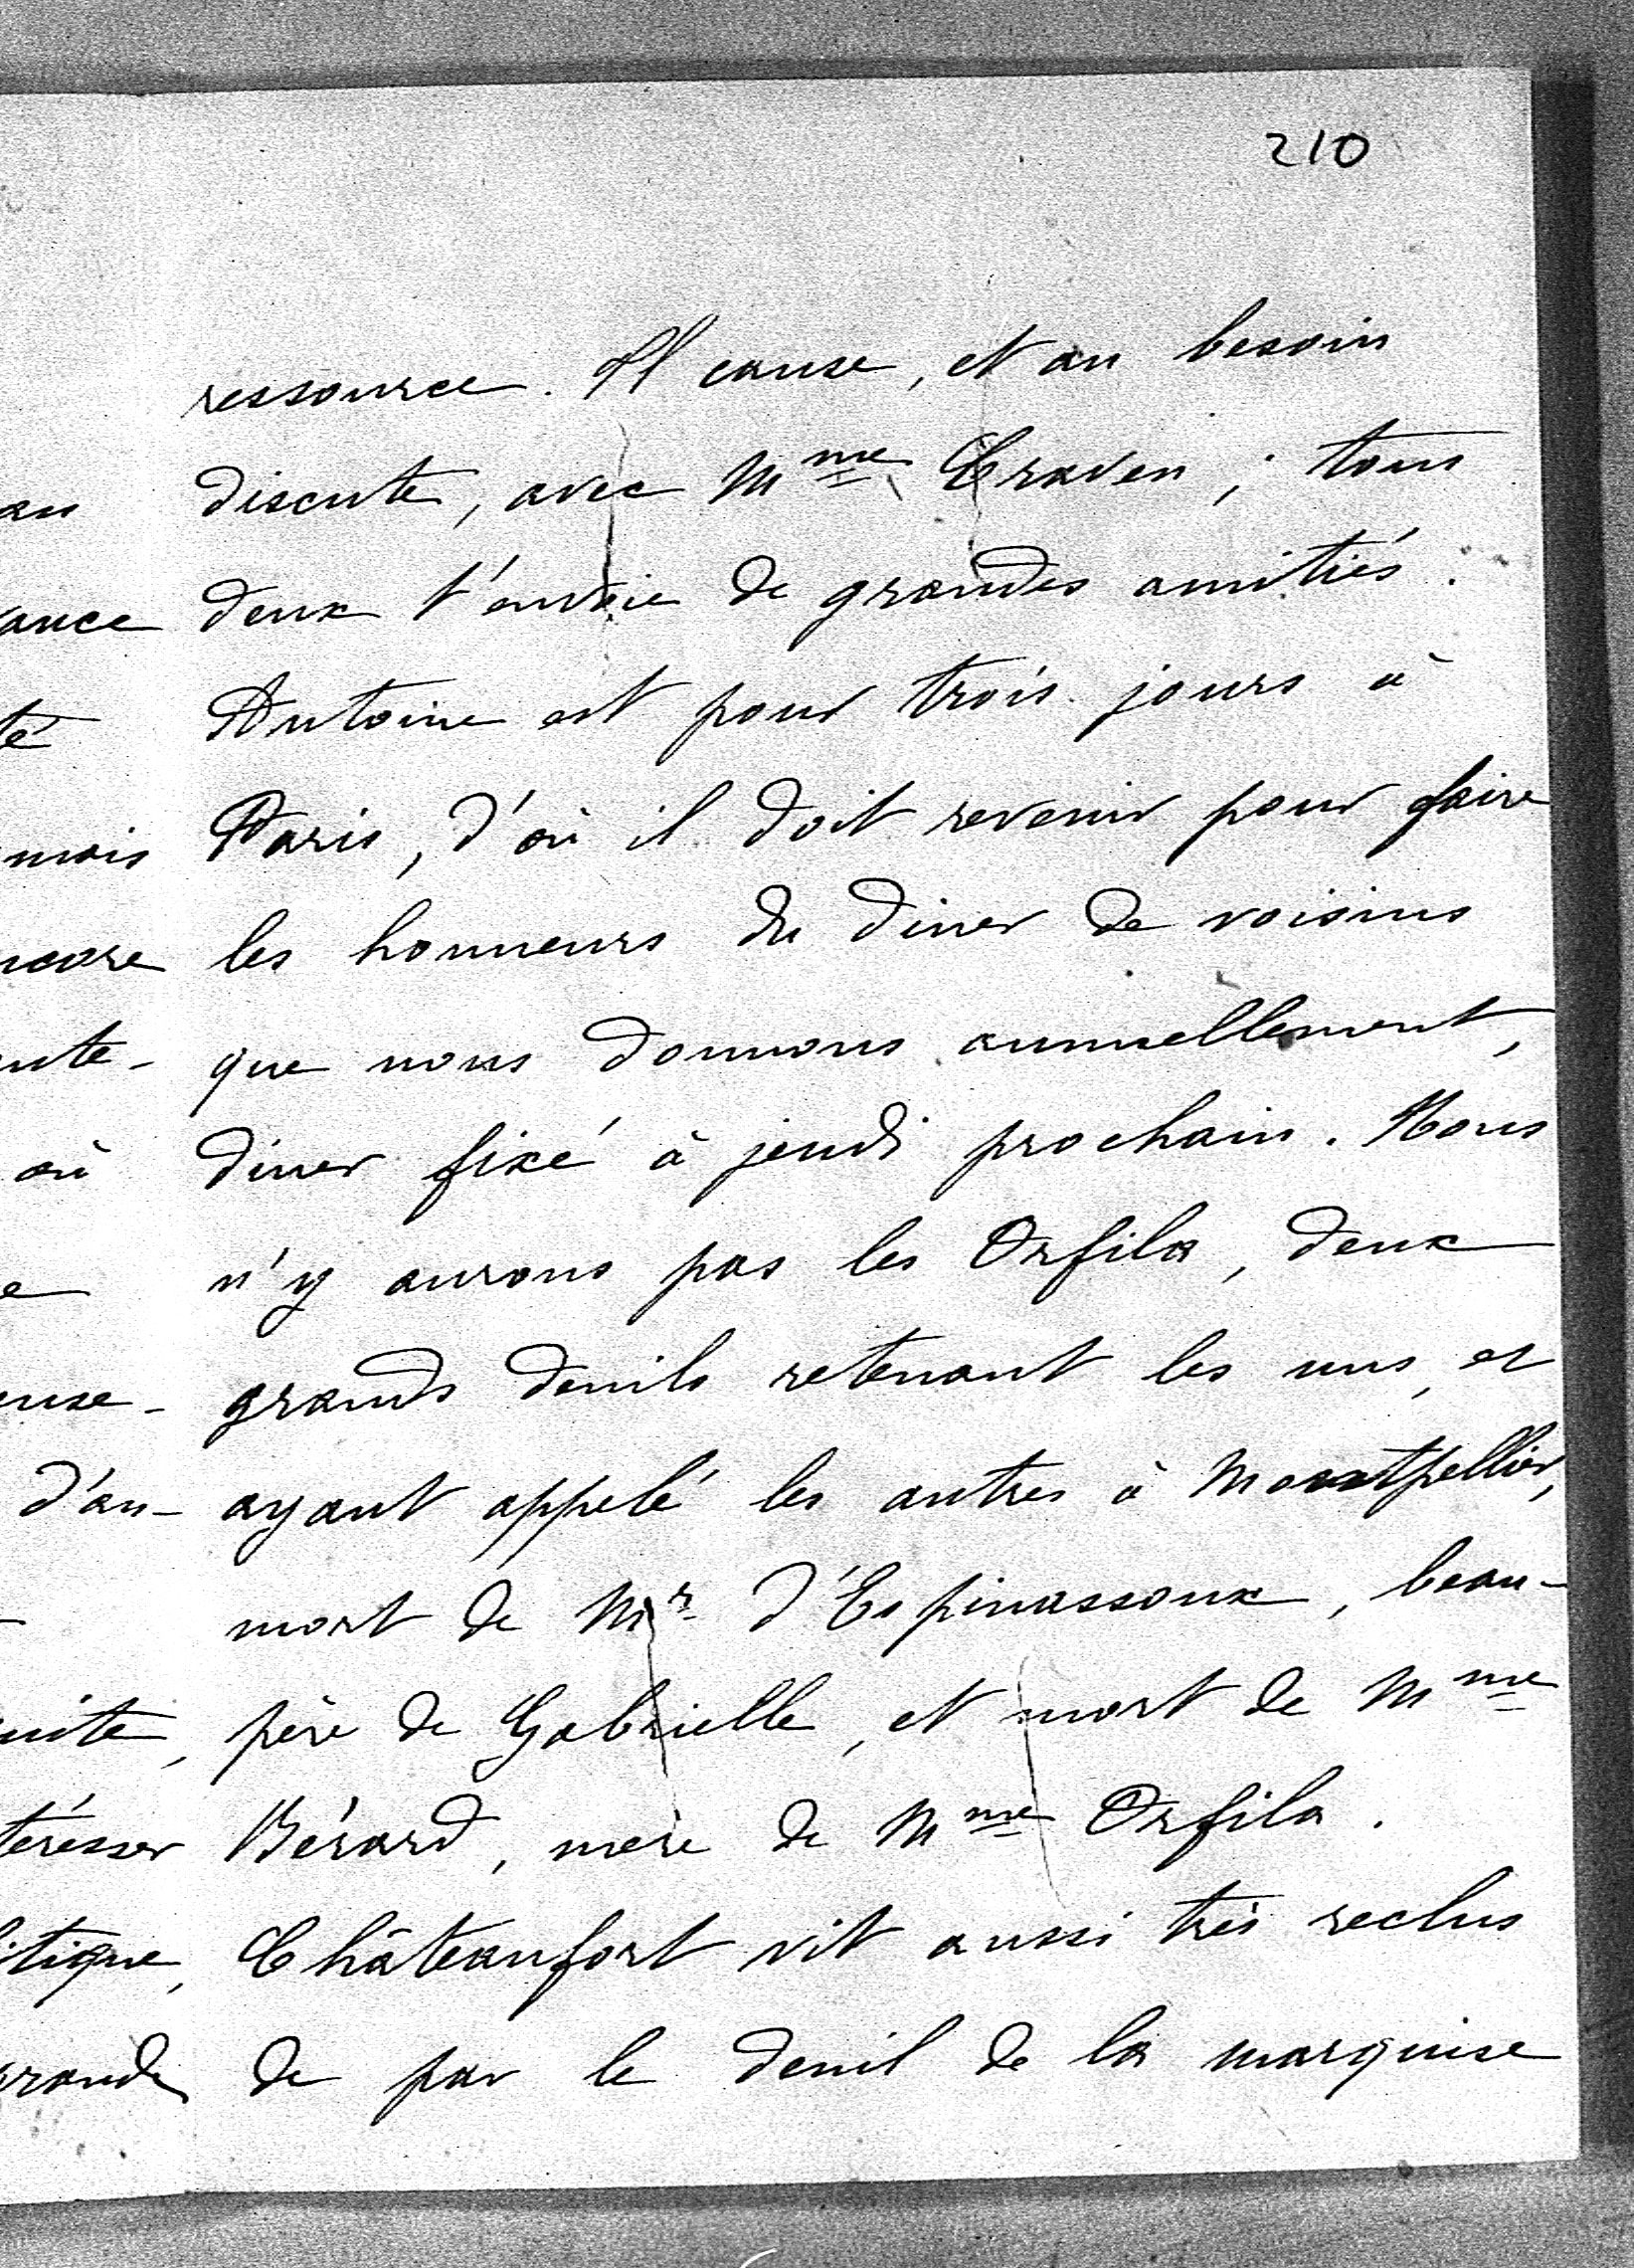 210
ressource. Il cause, et au besoin
discute, avec Mme Craven; tous
deux t'envoie de grandes amitiés.
Antoine est pour trois jours à
Paris, d'où il doit revenir pour faire
les honneurs du diner de voisins
que nous donnons annuellement,
diner fixé à jeudi prochain. Nous
n'y aurons pas les Orfila, deux
grands deuils retenant les uns, et
ayant appelé les autres à Montpellier,
mort de Mr d'Espinassoux, beau-
père de Gabrielle, et mort de Mme
Bérard, mère de Mme Orfila.
Châteaufort vit aussi très reclus
de par le deuil de la marquise
au
ance
té
mais
ncore
ute-
où
e
euse-
d'au-
uite,
téresser
itique,
rande